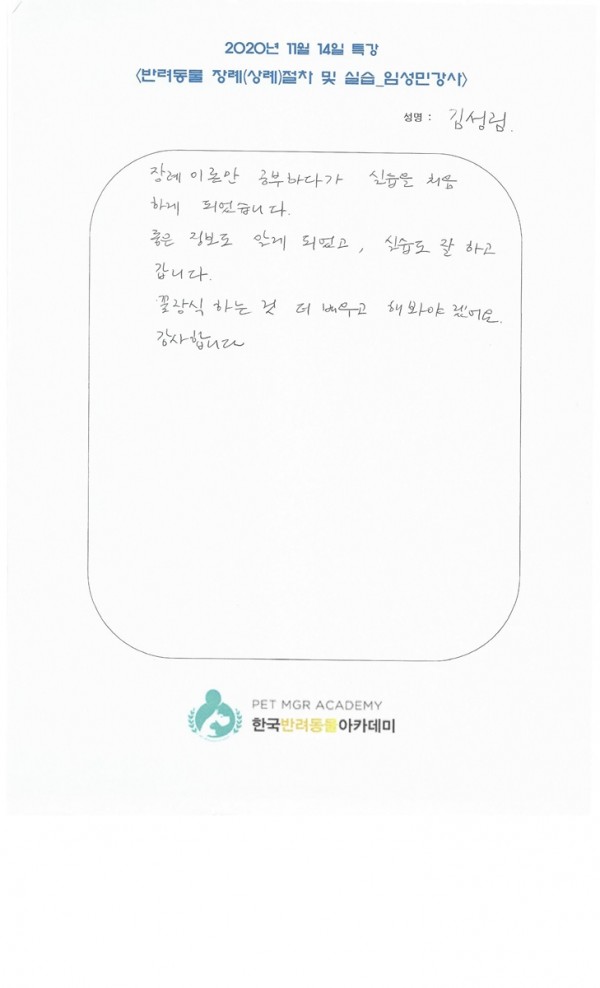 2020년 11월 14일 특강
<반려동물 장례(상례)절차 및 실습_임성민강사>
성명 : 김성림.
장례이론만 공부하다가 실습을 처음
하게 되었습니다.
좋은 정보도 알게 되었고, 실습도 잘 하고
갑니다.
꽃장식 하는 것 더 배우고 해봐야 겠어요.
감사합니다
PET MGR ACADEMY
한국반려동물아카데미